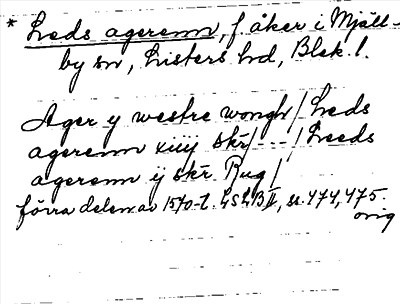 * Leds agerenn, f. åker i Mjäll-
by sn, Listers hd, Blek. l.
Ager y westre wongh / Leds
agerenn xiiij skr / --- / Leeds
agerenn ij skr Rug /
förra delen av 1570-t. LSLB II, ss. 474, 475.
orig